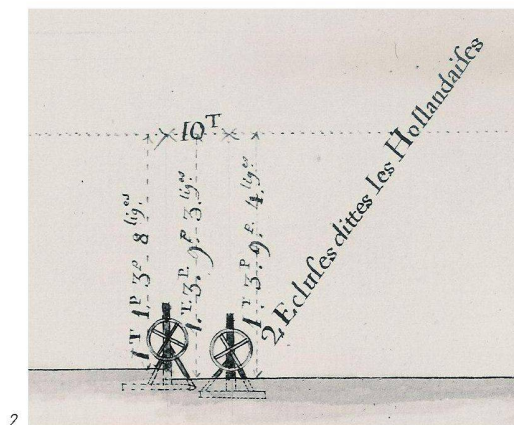 10 T
1 T 1 P 3 p 8 lig.es
1 T. 3. P. 9 p. 3. lig.es
1 T 3. P. 9. p. 4. lig.es
2 Ecluſes dittes les Hollandaiſes
2